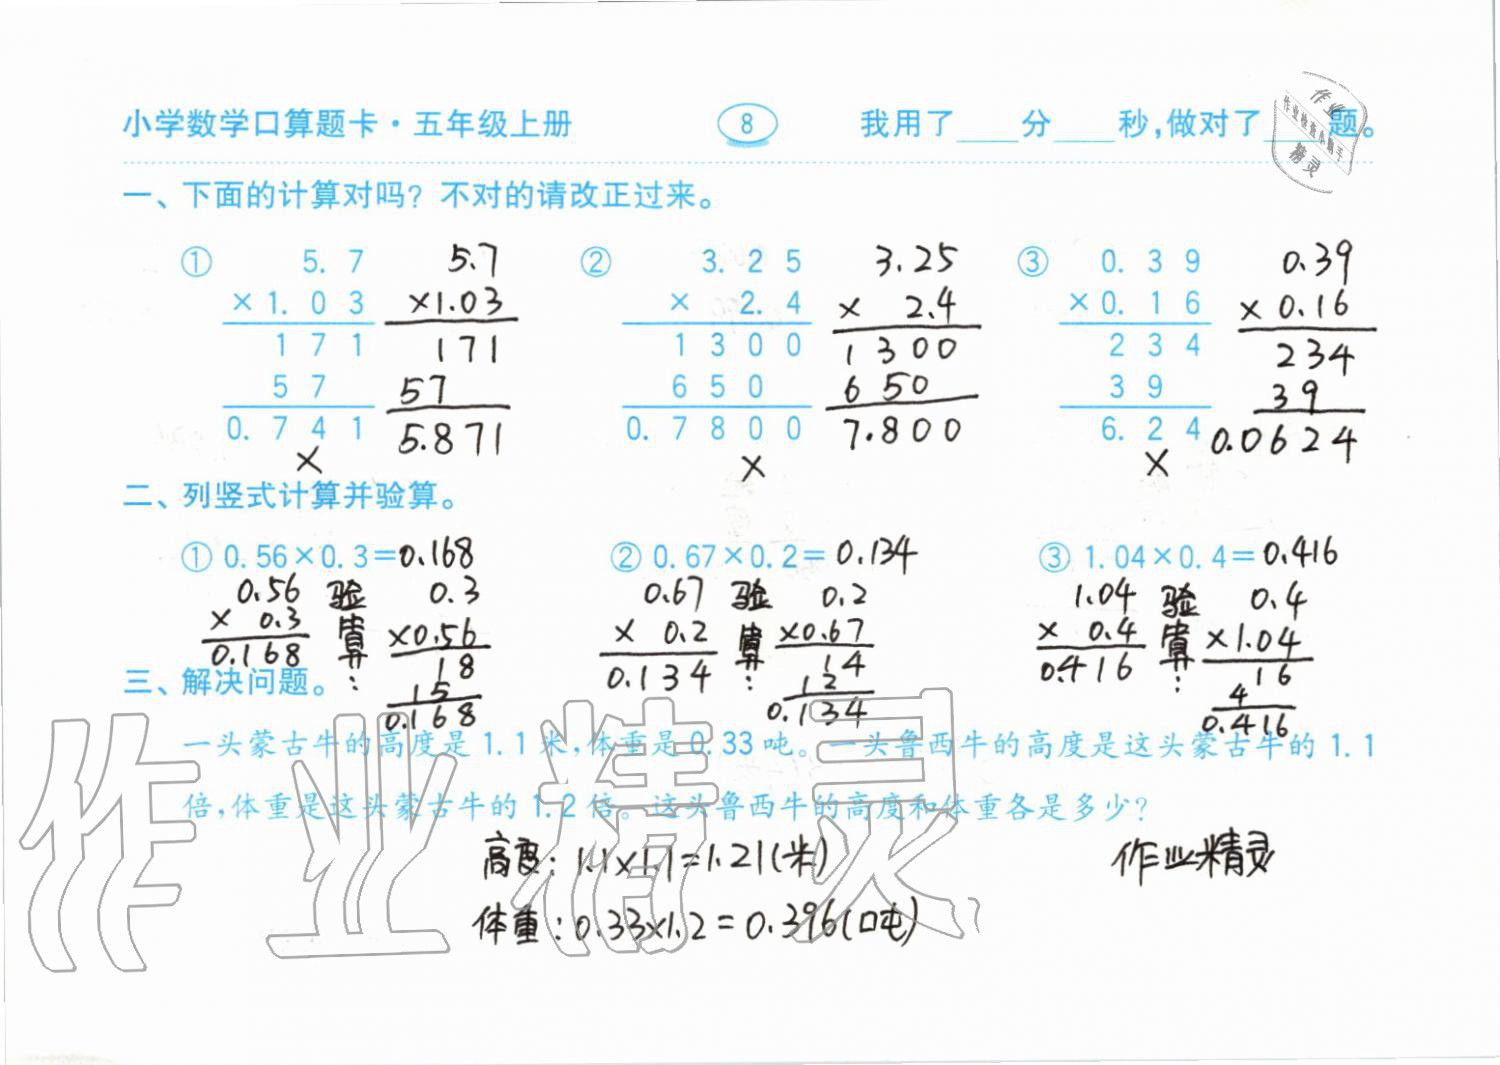 小学数学口算题卡·五年级上册 8 我用了____分____秒,做对了____题。
作业
作业检查小助手
精灵
一、下面的计算对吗？不对的请改正过来。
① 5.7 5.7 ② 3.25 3.25 ③ 0.39 0.39
×1.03 ×1.03 × 2.4 × 2.4 ×0.16 × 0.16
171 171 1300 1300 234 234
57 57 650 650 39 39
0.741 5.871 0.7800 7.800 6.24 0.0624
× × ×
二、列竖式计算并验算。
① 0.56×0.3=0.168 ② 0.67×0.2=0.134 ③ 1.04×0.4=0.416
0.56 验 0.3 0.67 验 0.2 1.04 验 0.4
× 0.3 算 ×0.56 × 0.2 算 ×0.67 × 0.4 算 ×1.04
0.168 : 18 0.134 : 14 0.416 : 16
15 12 4
0.168 0.134 0.416
三、解决问题。
一头蒙古牛的高度是1.1米,体重是0.33吨。一头鲁西牛的高度是这头蒙古牛的1.1
倍,体重是这头蒙古牛的1.2倍。这头鲁西牛的高度和体重各是多少？
高度:1.1×1.1=1.21(米) 作业精灵
体重:0.33×1.2=0.396(吨)
作业精灵